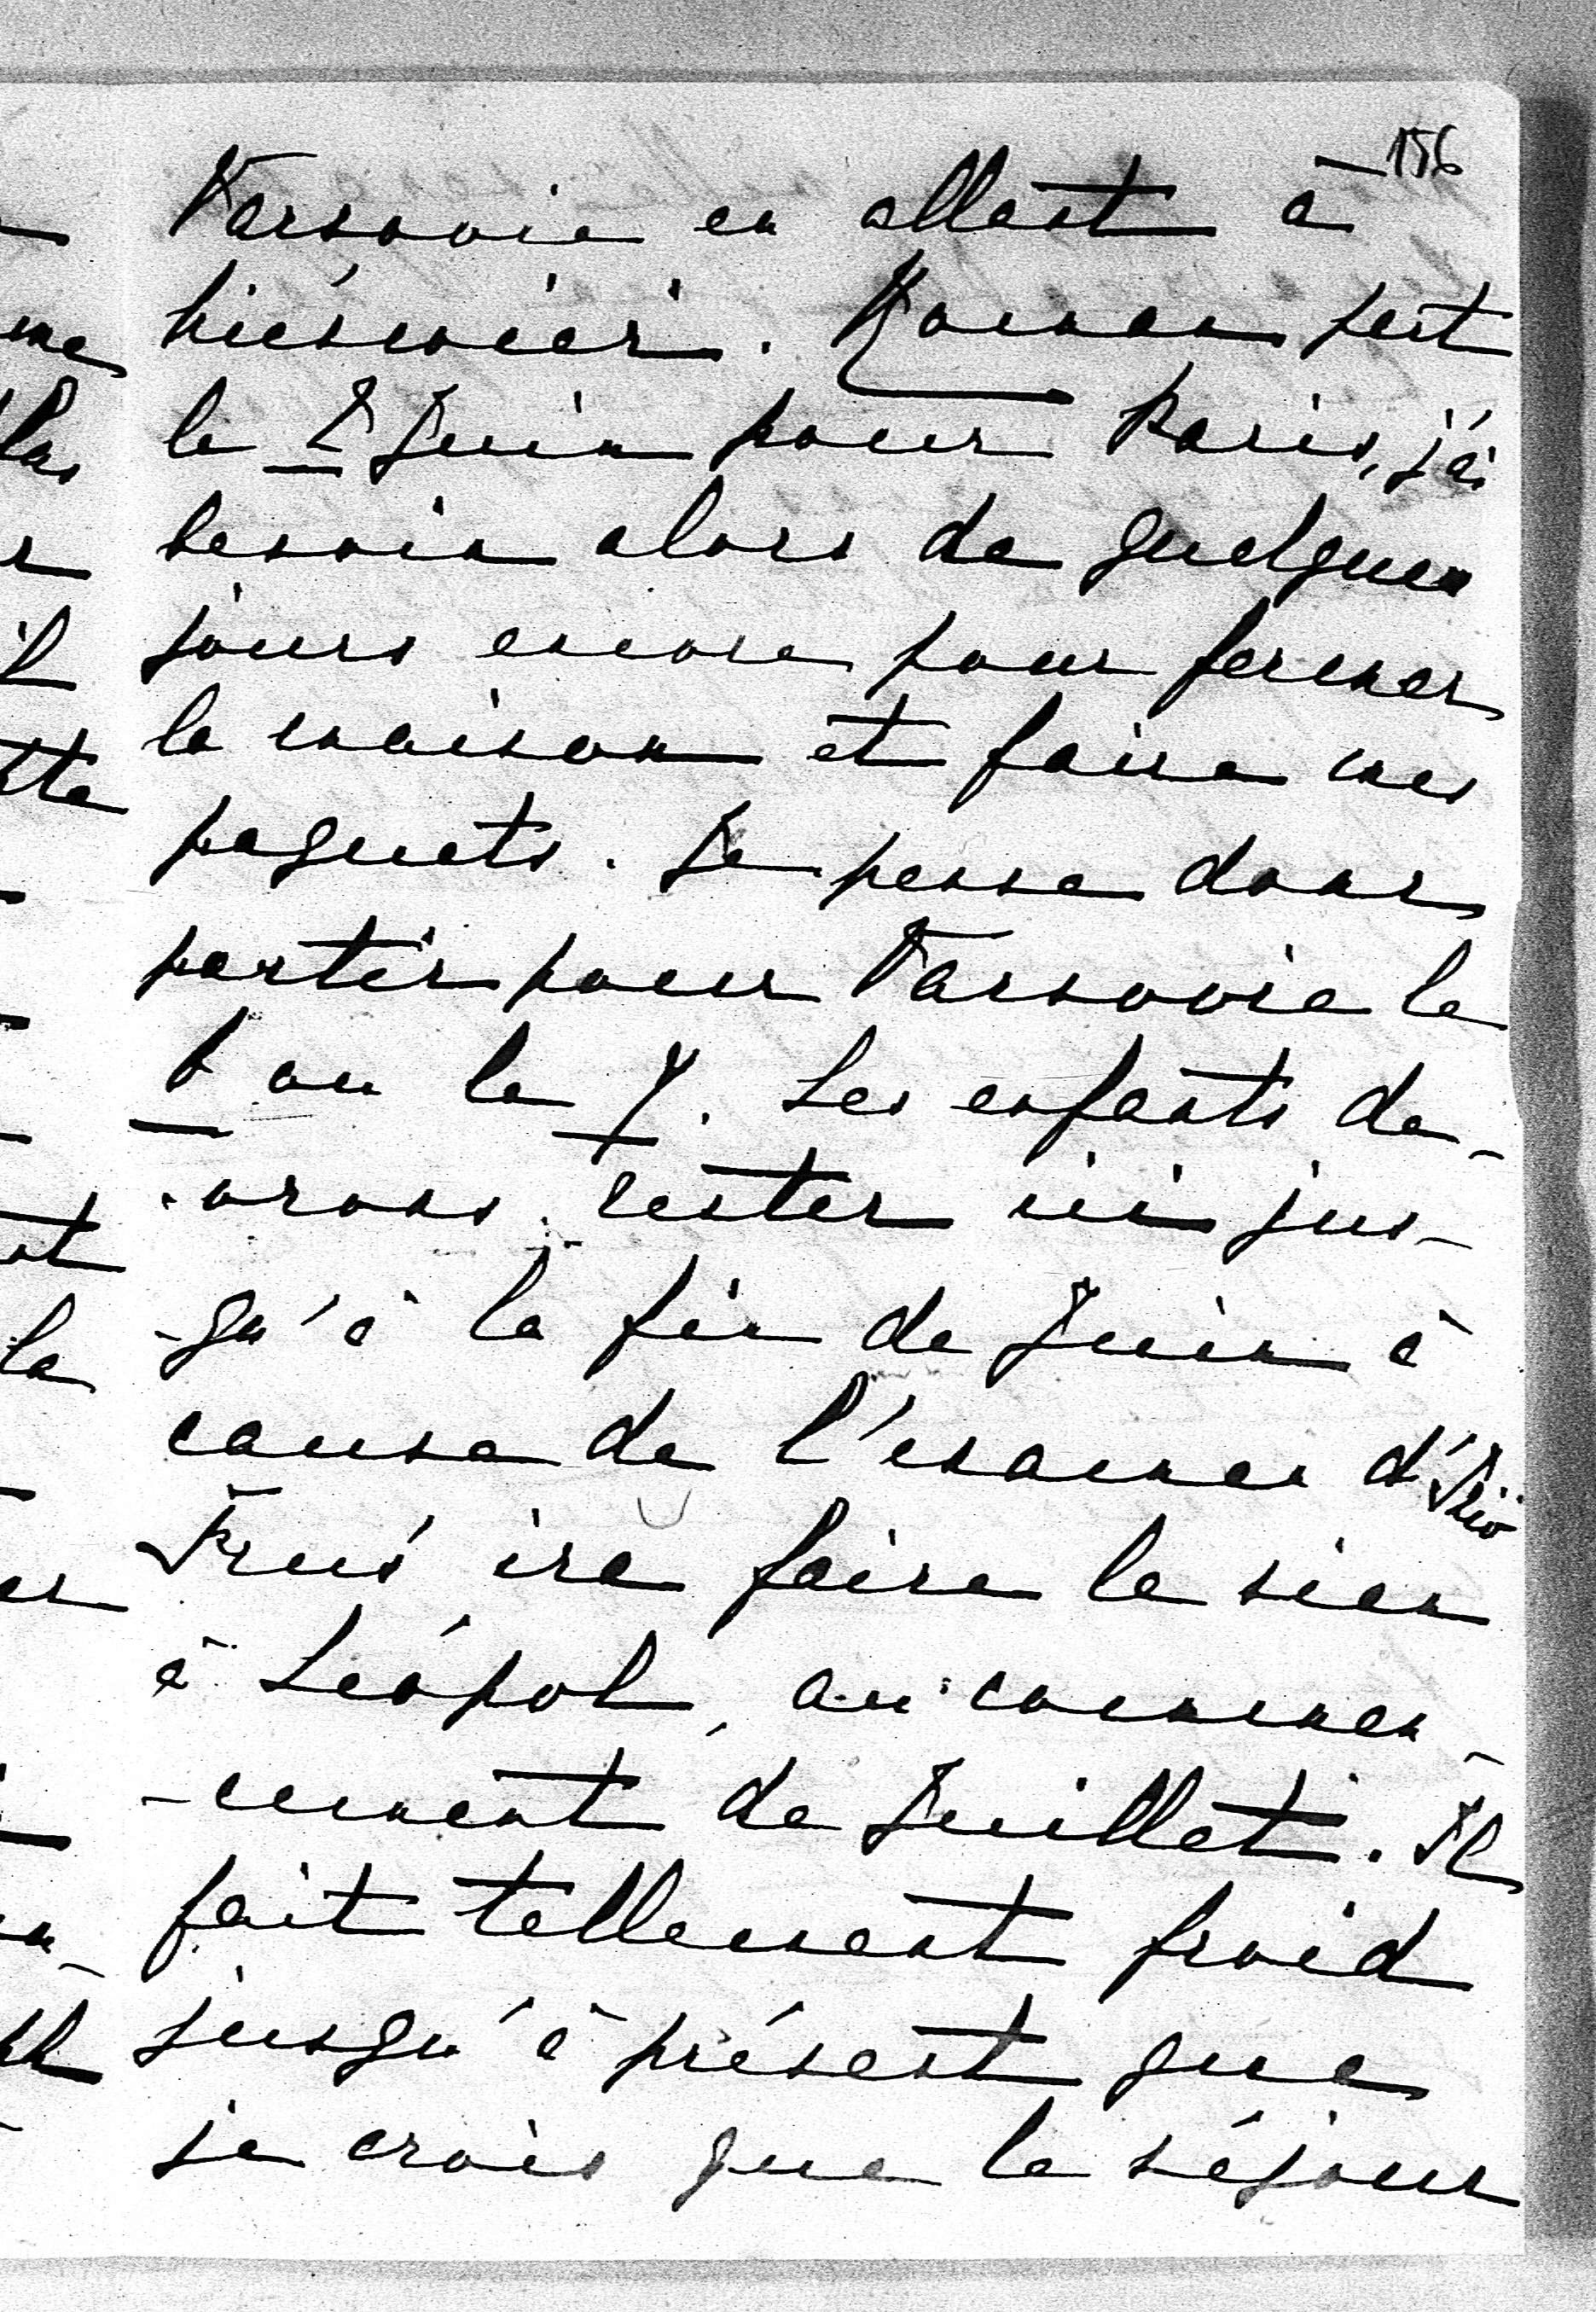 156
Varsovie en allant à
Niéśwież. Roman part
le 2 Juin pour Paris, j'ai
besoin alors de quelques
jours encore pour fermer
la maison et faire mes
paquets. Je pense donc
partir pour Varsovie le
6 ou le 7. Les enfants de-
-vrons rester ici jus-
-qu'à la fin de Juin à
cause de l'examen d'
ira faire le sien
à Léopol, au commen-
-cement de Juillet. Il
fait tellement froid
jusqu'à présent que
je crois que le séjour